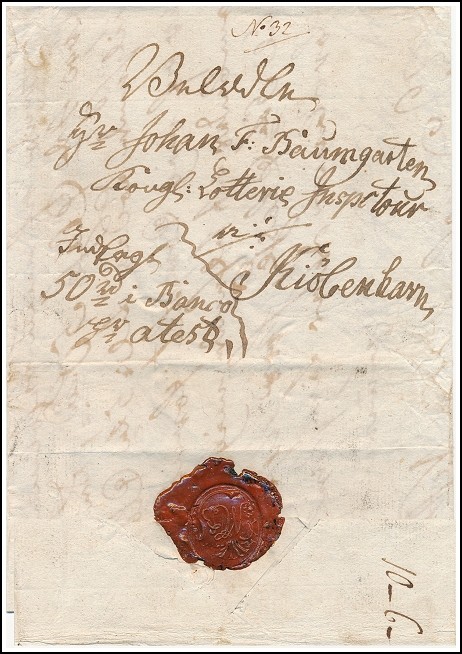 No 32
Velædle
Hr Johan F: Baumgarten
Kongl: Lotterie Inspetour
i
Kiöbenhavn
Indlagt
50 rd i Banco
er atest
10-6-